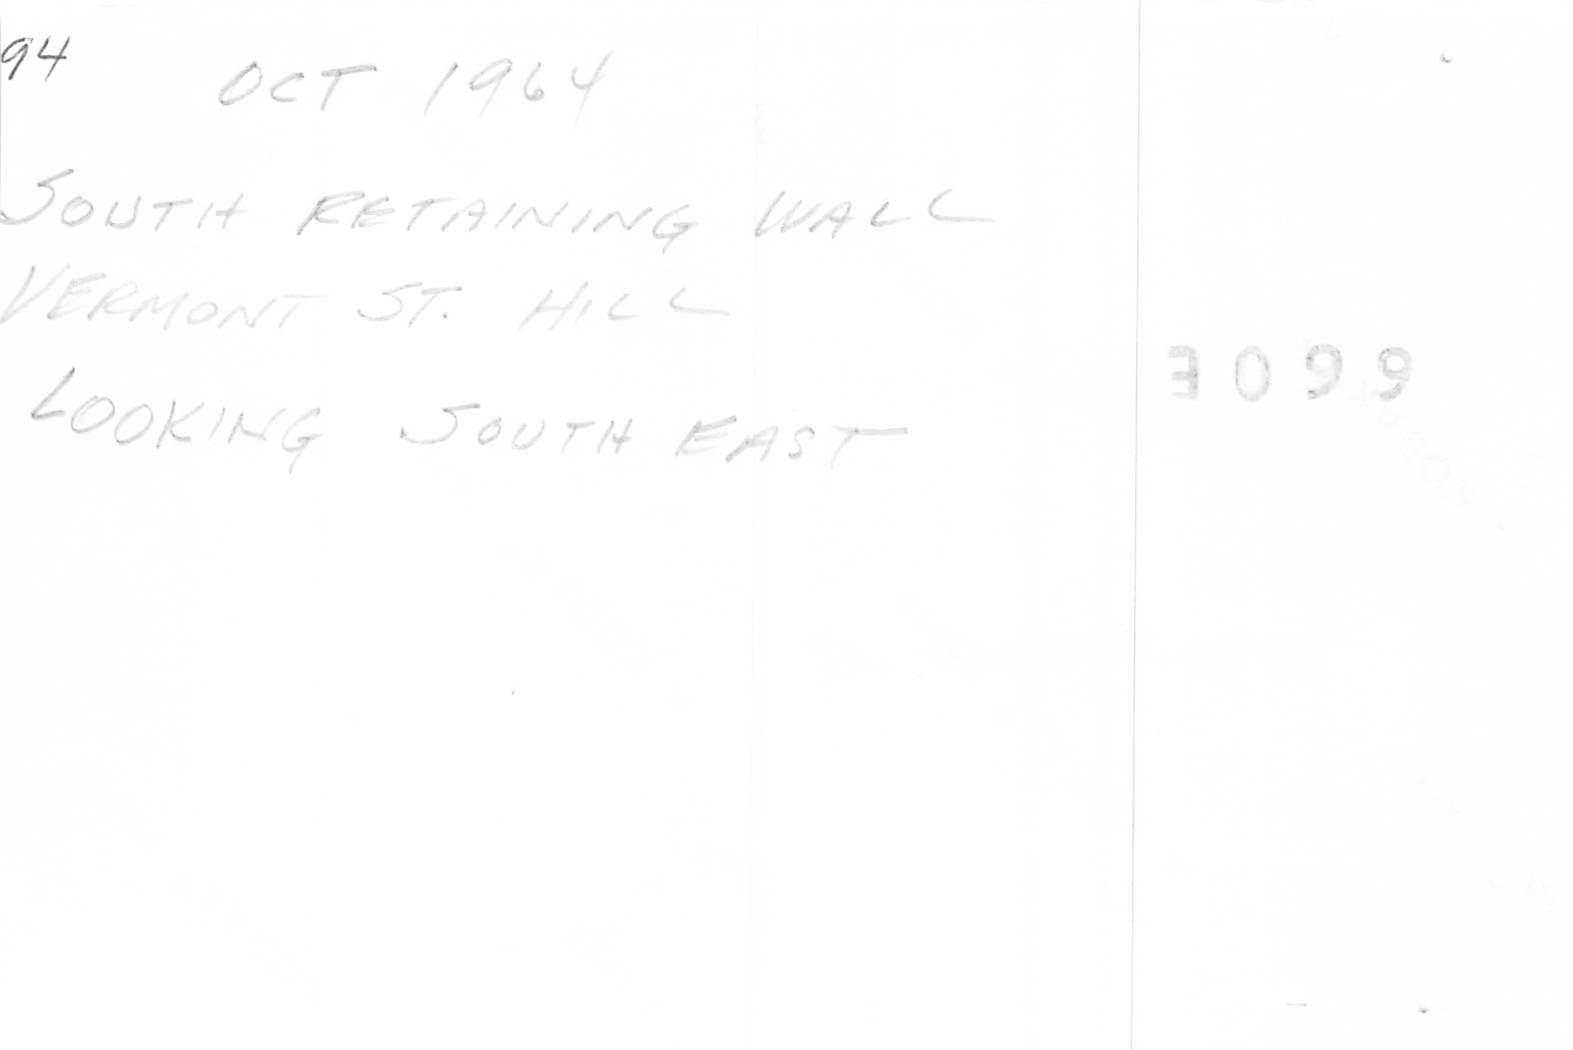 94
OCT 1964
SOUTH RETAINING WALL
VERMONT ST. HILL
LOOKING SOUTH EAST
3099